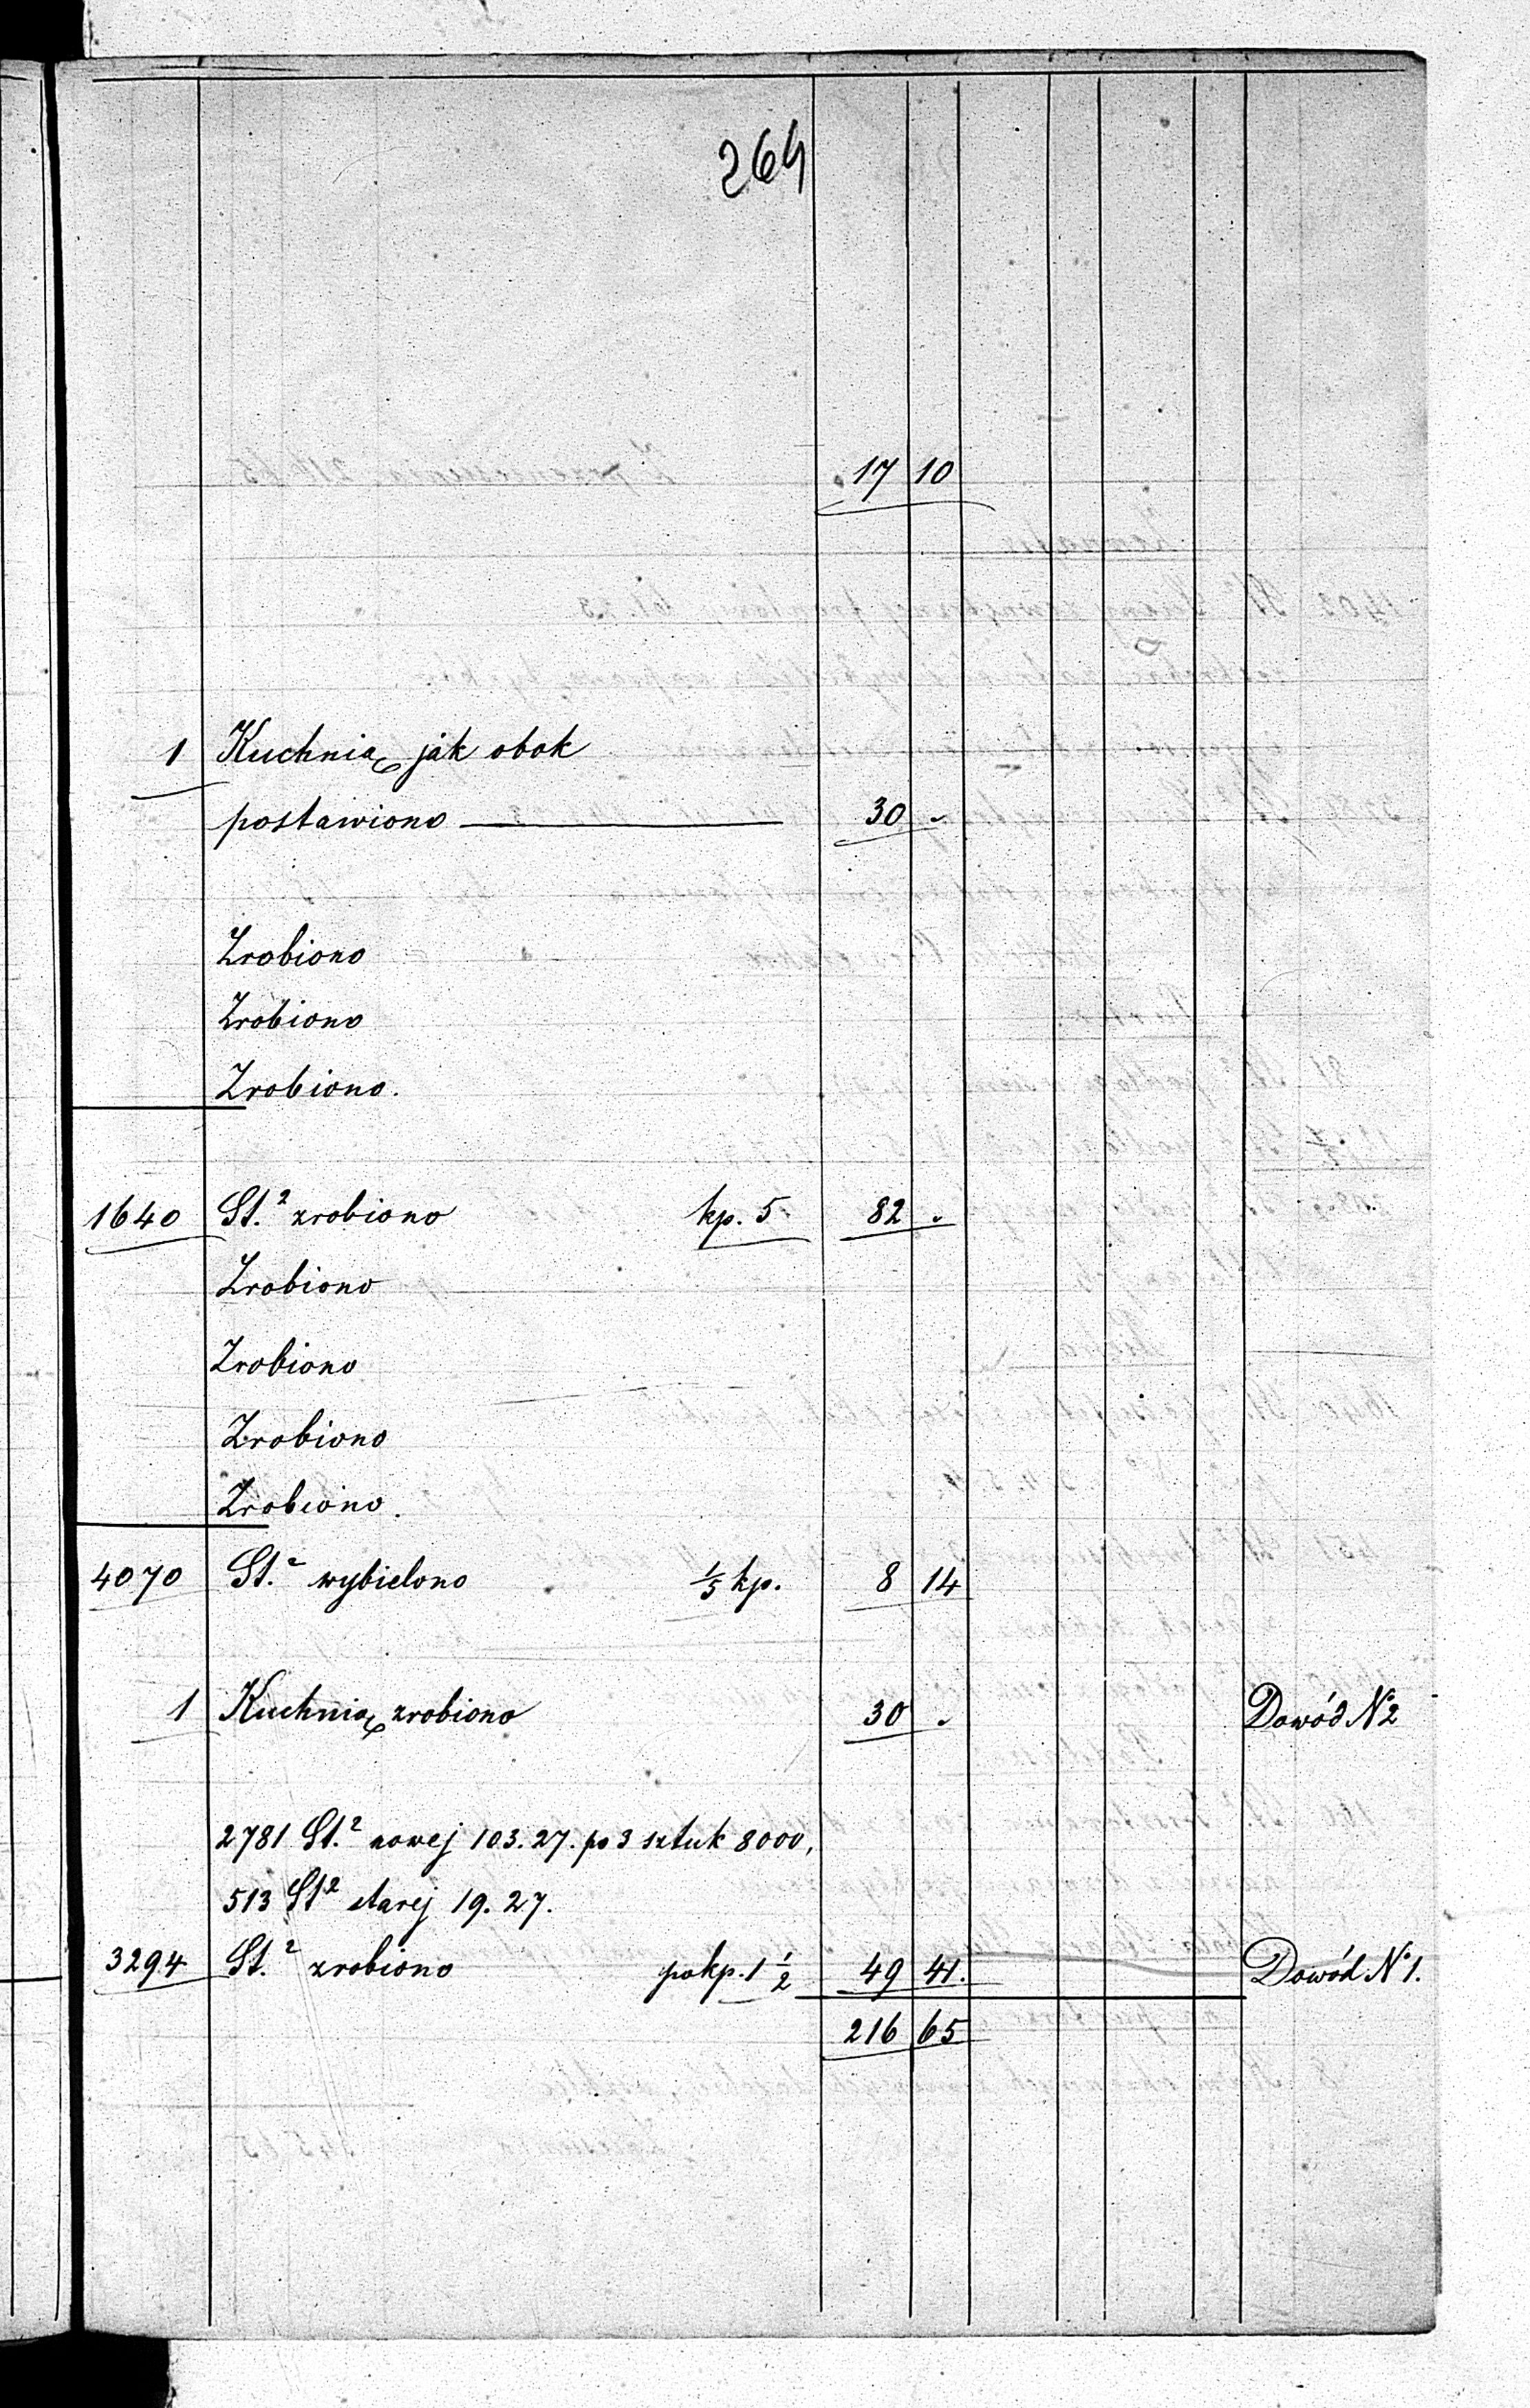 264
17 10
1 Kuchnię jak obok
postawiono 30 "
Zrobiono
Zrobiono
Zrobiono.
1640 St.² zrobiono kp. 5 82 "
Zrobiono
Zrobiono
Zrobiono
Zrobiono.
4070 St.² wybielono 1/5 kp. 8 14
1 Kuchnię zrobiono 30 " Dowód N2
2781 St.² nowej 103.27. po 3 sztuk 8000,
513 St² starej 19.27.
3294 St.² zrobiono po kp. 1 1/2 49 41. Dowód N°1.
216 65